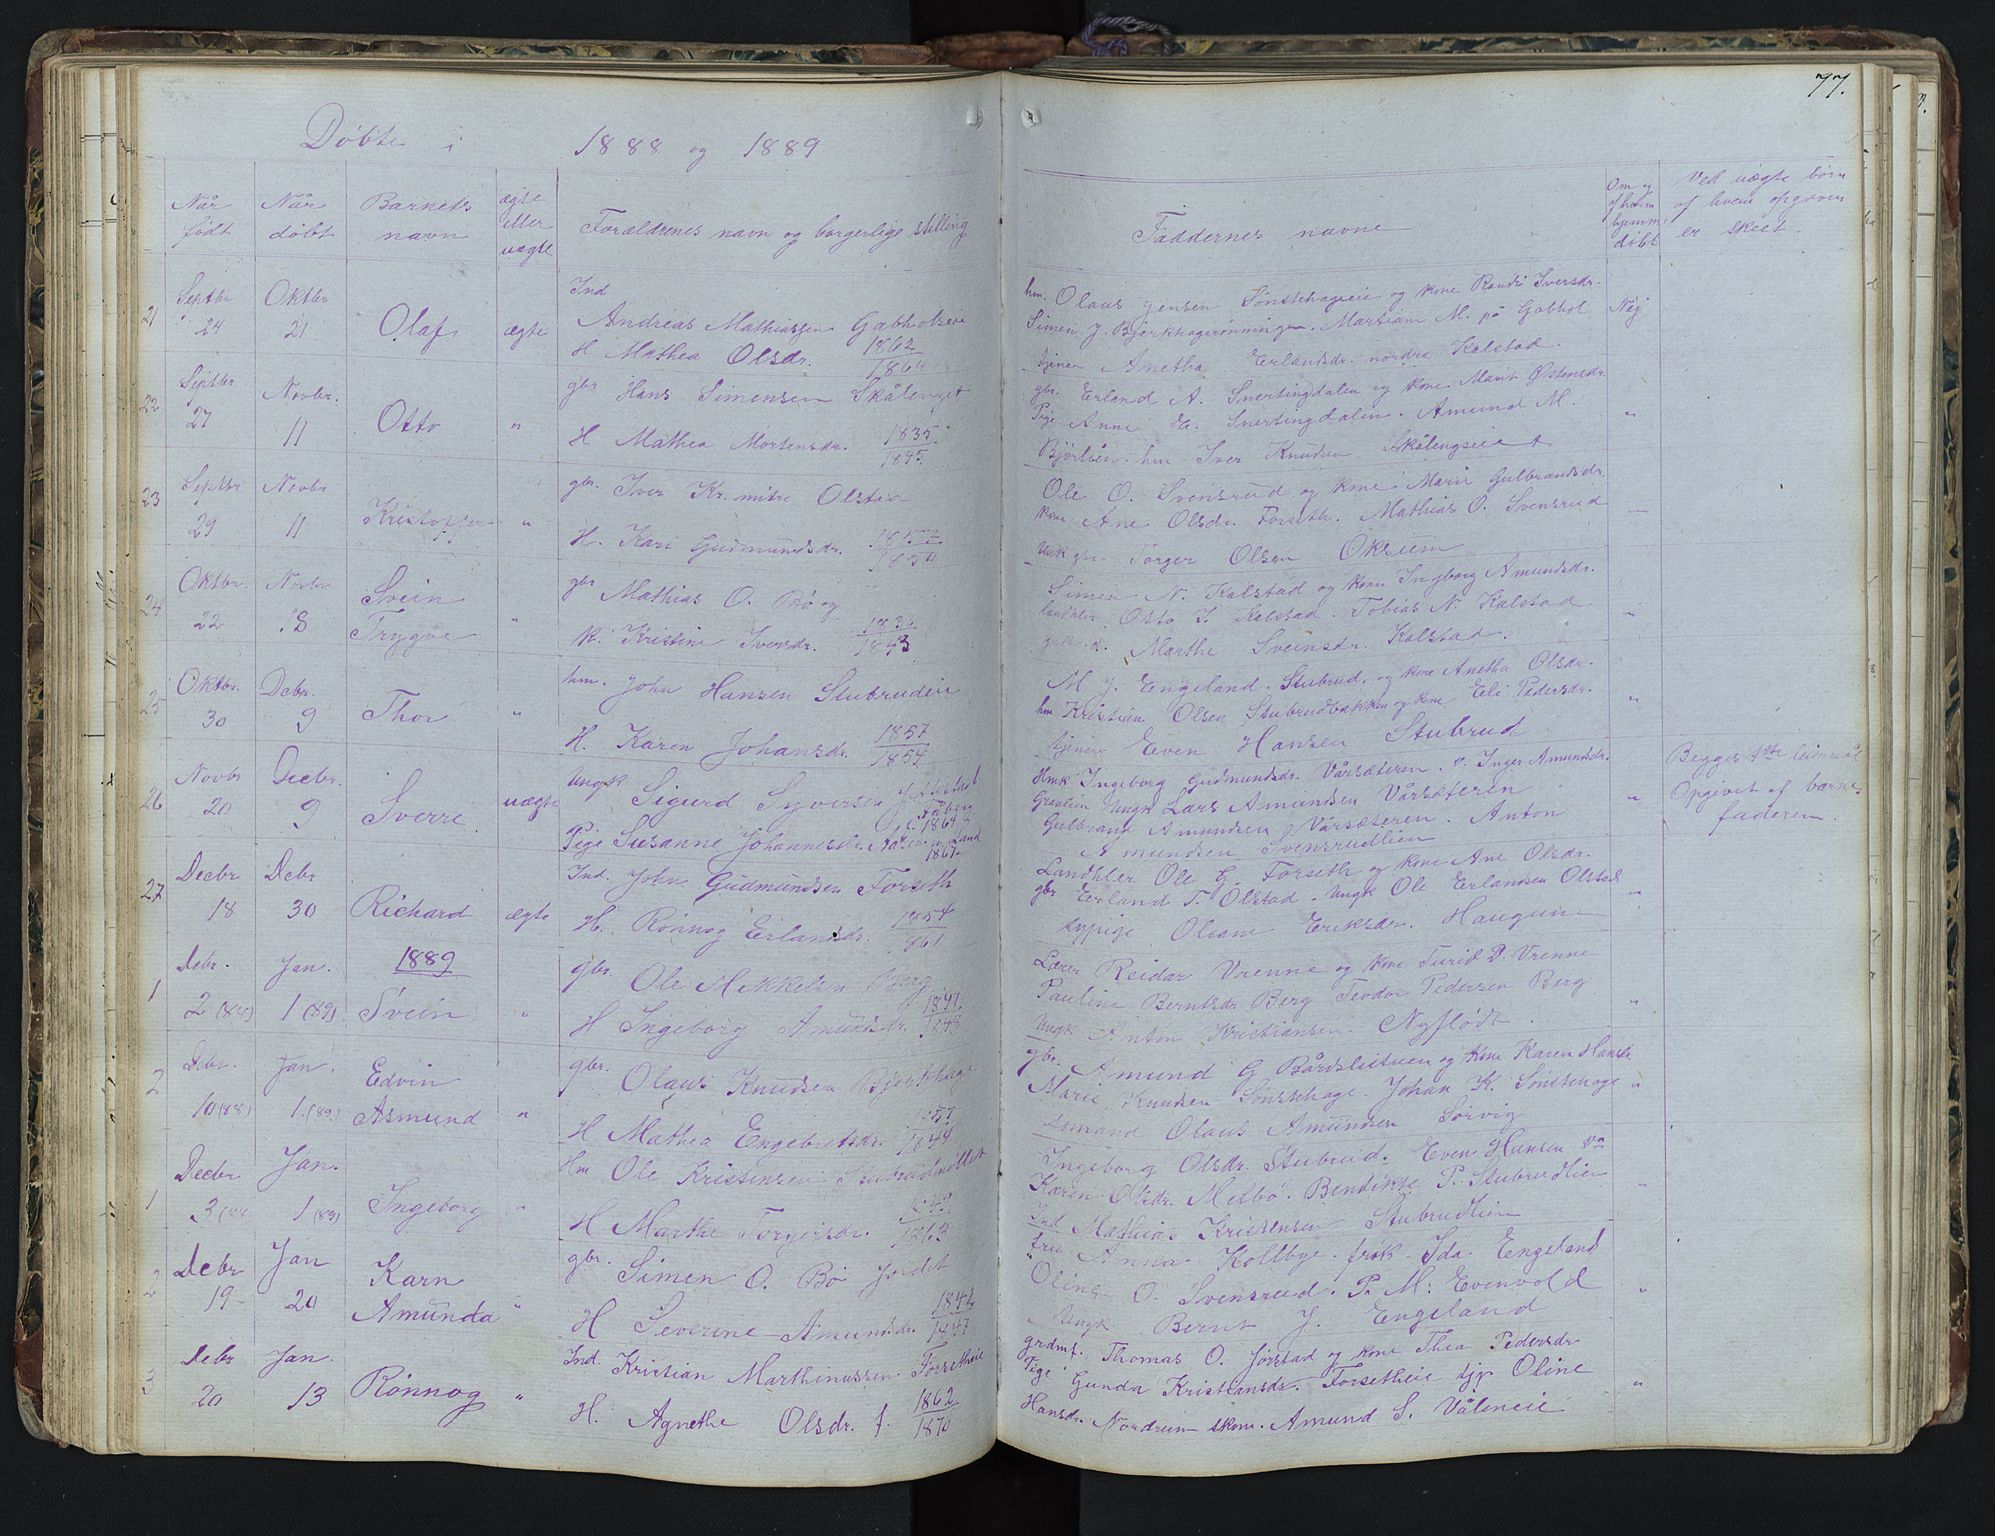 77.
Døbte i 1888 og 1889
Når født
Når døbt
Barnets navn
ægte eller uægte
Forældrenes navn og borgerlige stilling
Faddernes navne
Om og af hvem hjemmedøbt
Ved uægte børn af hvem opgaven er skeet.
21 Septbr 24 Oktbr 21 Olaf ægte
Ind Andreas Mathiassen Gabholseie
H Mathea Olsdr. 1862 1864
hm. Olaus Jensen Sønstehageeie og kone Randi Iversdr.
Simen J. Bjerkhagerønningen. Martiam M. på Gabhol Nej
tjener Anetha Erlandsdr. nordre Kalstad.
22 Septbr. 27 Novbr. 11 Otto "
gbr Hans Simensen Skålenget
H Mathea Mortensdr. 1835 1845.
gbr. Erland A. Snertingdalen og kone Marit Østensdr.
Pige Anne E. Snertingdalen. Amund M. "
Bjørlien. hm Iver Knudsen Skålengseie
23 Septbr 29 Novbr 11 Kristoffer "
gbr. Iver Kr. mitre Olstad
H. Kari Gudmundsdr. 1857 1850
Ole O. Svensrud og kone Marie Gulbrandsdr.
kone Ane Olsdr. Forseth. Mathias O. Svensrud
Unk gbr. Torger Olsen Oksum
24 Oktbr. 22 Novbr 18 Svein Trygve "
gbr Mathias O. Bø og
k. Kristine Iversdr. 1843
Simen N. Kalstad og kone Ingborg Amundsdr.
landhlr Otto I. Kalstad. Tobias N. Kalstad "
Marthe Sveinsdr. Kalstad.
25 Oktbr. 30 Debr. 9 Thor "
hm. John Hansen Stubrudeie
H. Karen Johansdr. 1857 1854
M J. Engeland. Stubrud. og kone Anethe Olsdr.
hm Kristian Olsen Stubrudbakken og kone Eli Pedersdr. "
tjener Even Hansen Stubrud
26 Novbr 20 Decbr. 9 Sverre uægte
Ungk Sigurd Syversen Jørstad Fåberg f. 1864
Pige Susanne Johannesdr. Land 1867.
Hmk Ingeborg Gudmundsdr. Vårsæteren. Inger Amundsdr.
Graulien Ungk Lars Amundsen Vårsæteren "
Gulbrand Amundsen Vårsæteren. Anton
Amundsen Svensrudlien
Begges 1ste leiermål
Opgivet af barne-
faderen.
27 Decbr 18 Debr 30 Richard ægte
Ind. John Gudmundsen Forseth
H. Rønnog Erlandsdr. 1854 1861
Landhlr Ole G. Forseth og kone Ane Olsdr.
gbr Erland T. Olstad. Ungk Ole Erlandsen Olstad "
typige Oleane Eriksdr. Haugum
1889
1 Debr. 2 (88) Jan. 1 (89) Svein "
gbr. Ole Mikkelsen Berg
H Ingeborg Amundsdr. 1847 1848
Lærer Reidar Vrenne og kone Turid D. Vrenne
Pauline Berntsdr Berg Teodor Pedersen Berg "
Ungk Anton Kristiansen Nyflødt.
2 Debr. 10 (88) Jan. 1. (89) Edvin Asmund "
gbr. Olaus Knudsen Bjerkhage
H Mathea Engebretsdr. 1857 1844
gbr. Amund G Bårdslistuen og kone Karen Hansdr.
Marie Knudsen Sønstehage. Johan K. Sønstehage "
Olaus Amundsen Sørvig
1 Decbr 3 (88 Jan. 1 (89) Ingeborg "
Hm Ole Kristensen Stubrudmøllen
H Marthe Torgersdr. 1849 1863
Ingeborg Olsdr. Stubrud. Even Hansen
Karen Olsdr. Melbø. Bendikte P. Stubrudlien "
Ind Mathias Kristensen Stubrudlien
2 Debr 19 Jan 20 Karn Amunda "
gbr. Simen O. Bø Jordet
H Severine Amundsdr. 1842 1847
fru Anna Kolbye. frøk. Ida Engeland
Oline O. Svensrud. P. M. Evenvold "
Ungk Bernt J. Engeland
3 Debr 20 Jan. 13 Rønnog "
Ind. Kristian Marthinussen Forsetheie
H. Agnethe Olsdr. f. 1862 1870
grdmf. Thomas O. Jørstad og kone Thea Pedersdr
Pige Gunda Kristiansdr. Forsetheie tjp Oline "
Hansdr. Nordrum skom. Amund S. Våleneie